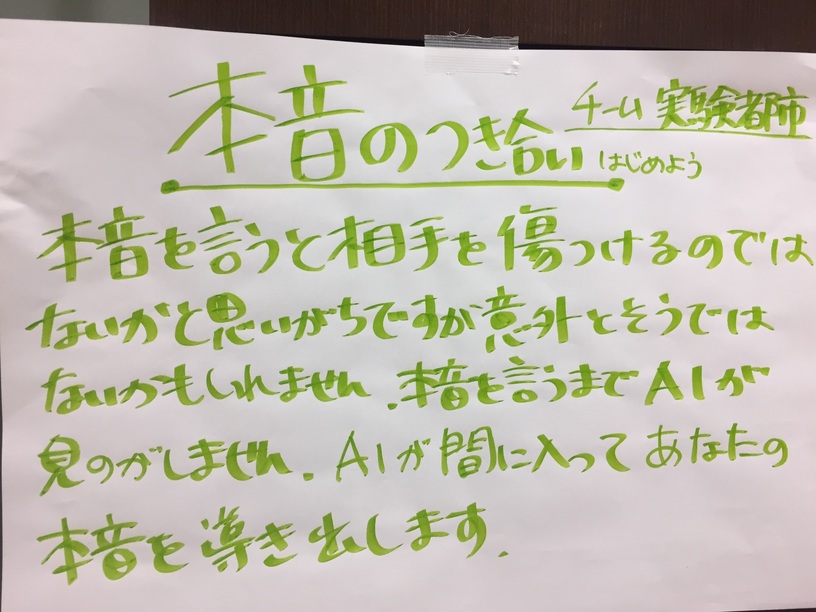 本音のつき合い はじめよう
チーム 実験者師
本音を言うと相手を傷つけるのでは
ないかと思いがちですが意外とそうでは
ないかもしれません。本音を言うまでAIが
見のがしません。AIが間に入ってあなたの
本音を導き出します。